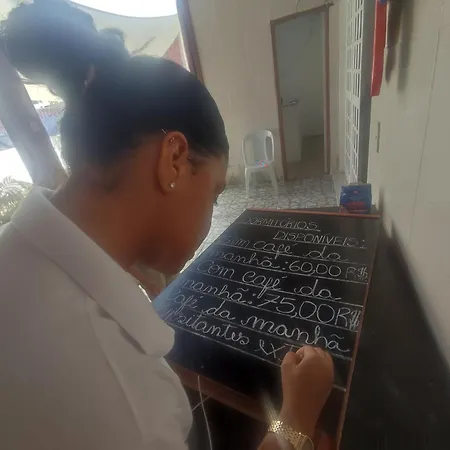 DORMITÓRIOS
DISPONIVEIS:
com café da
manhã: 60,00 R$
Com café da
manhã: 75,00 R$
Café da manhã
visitantes